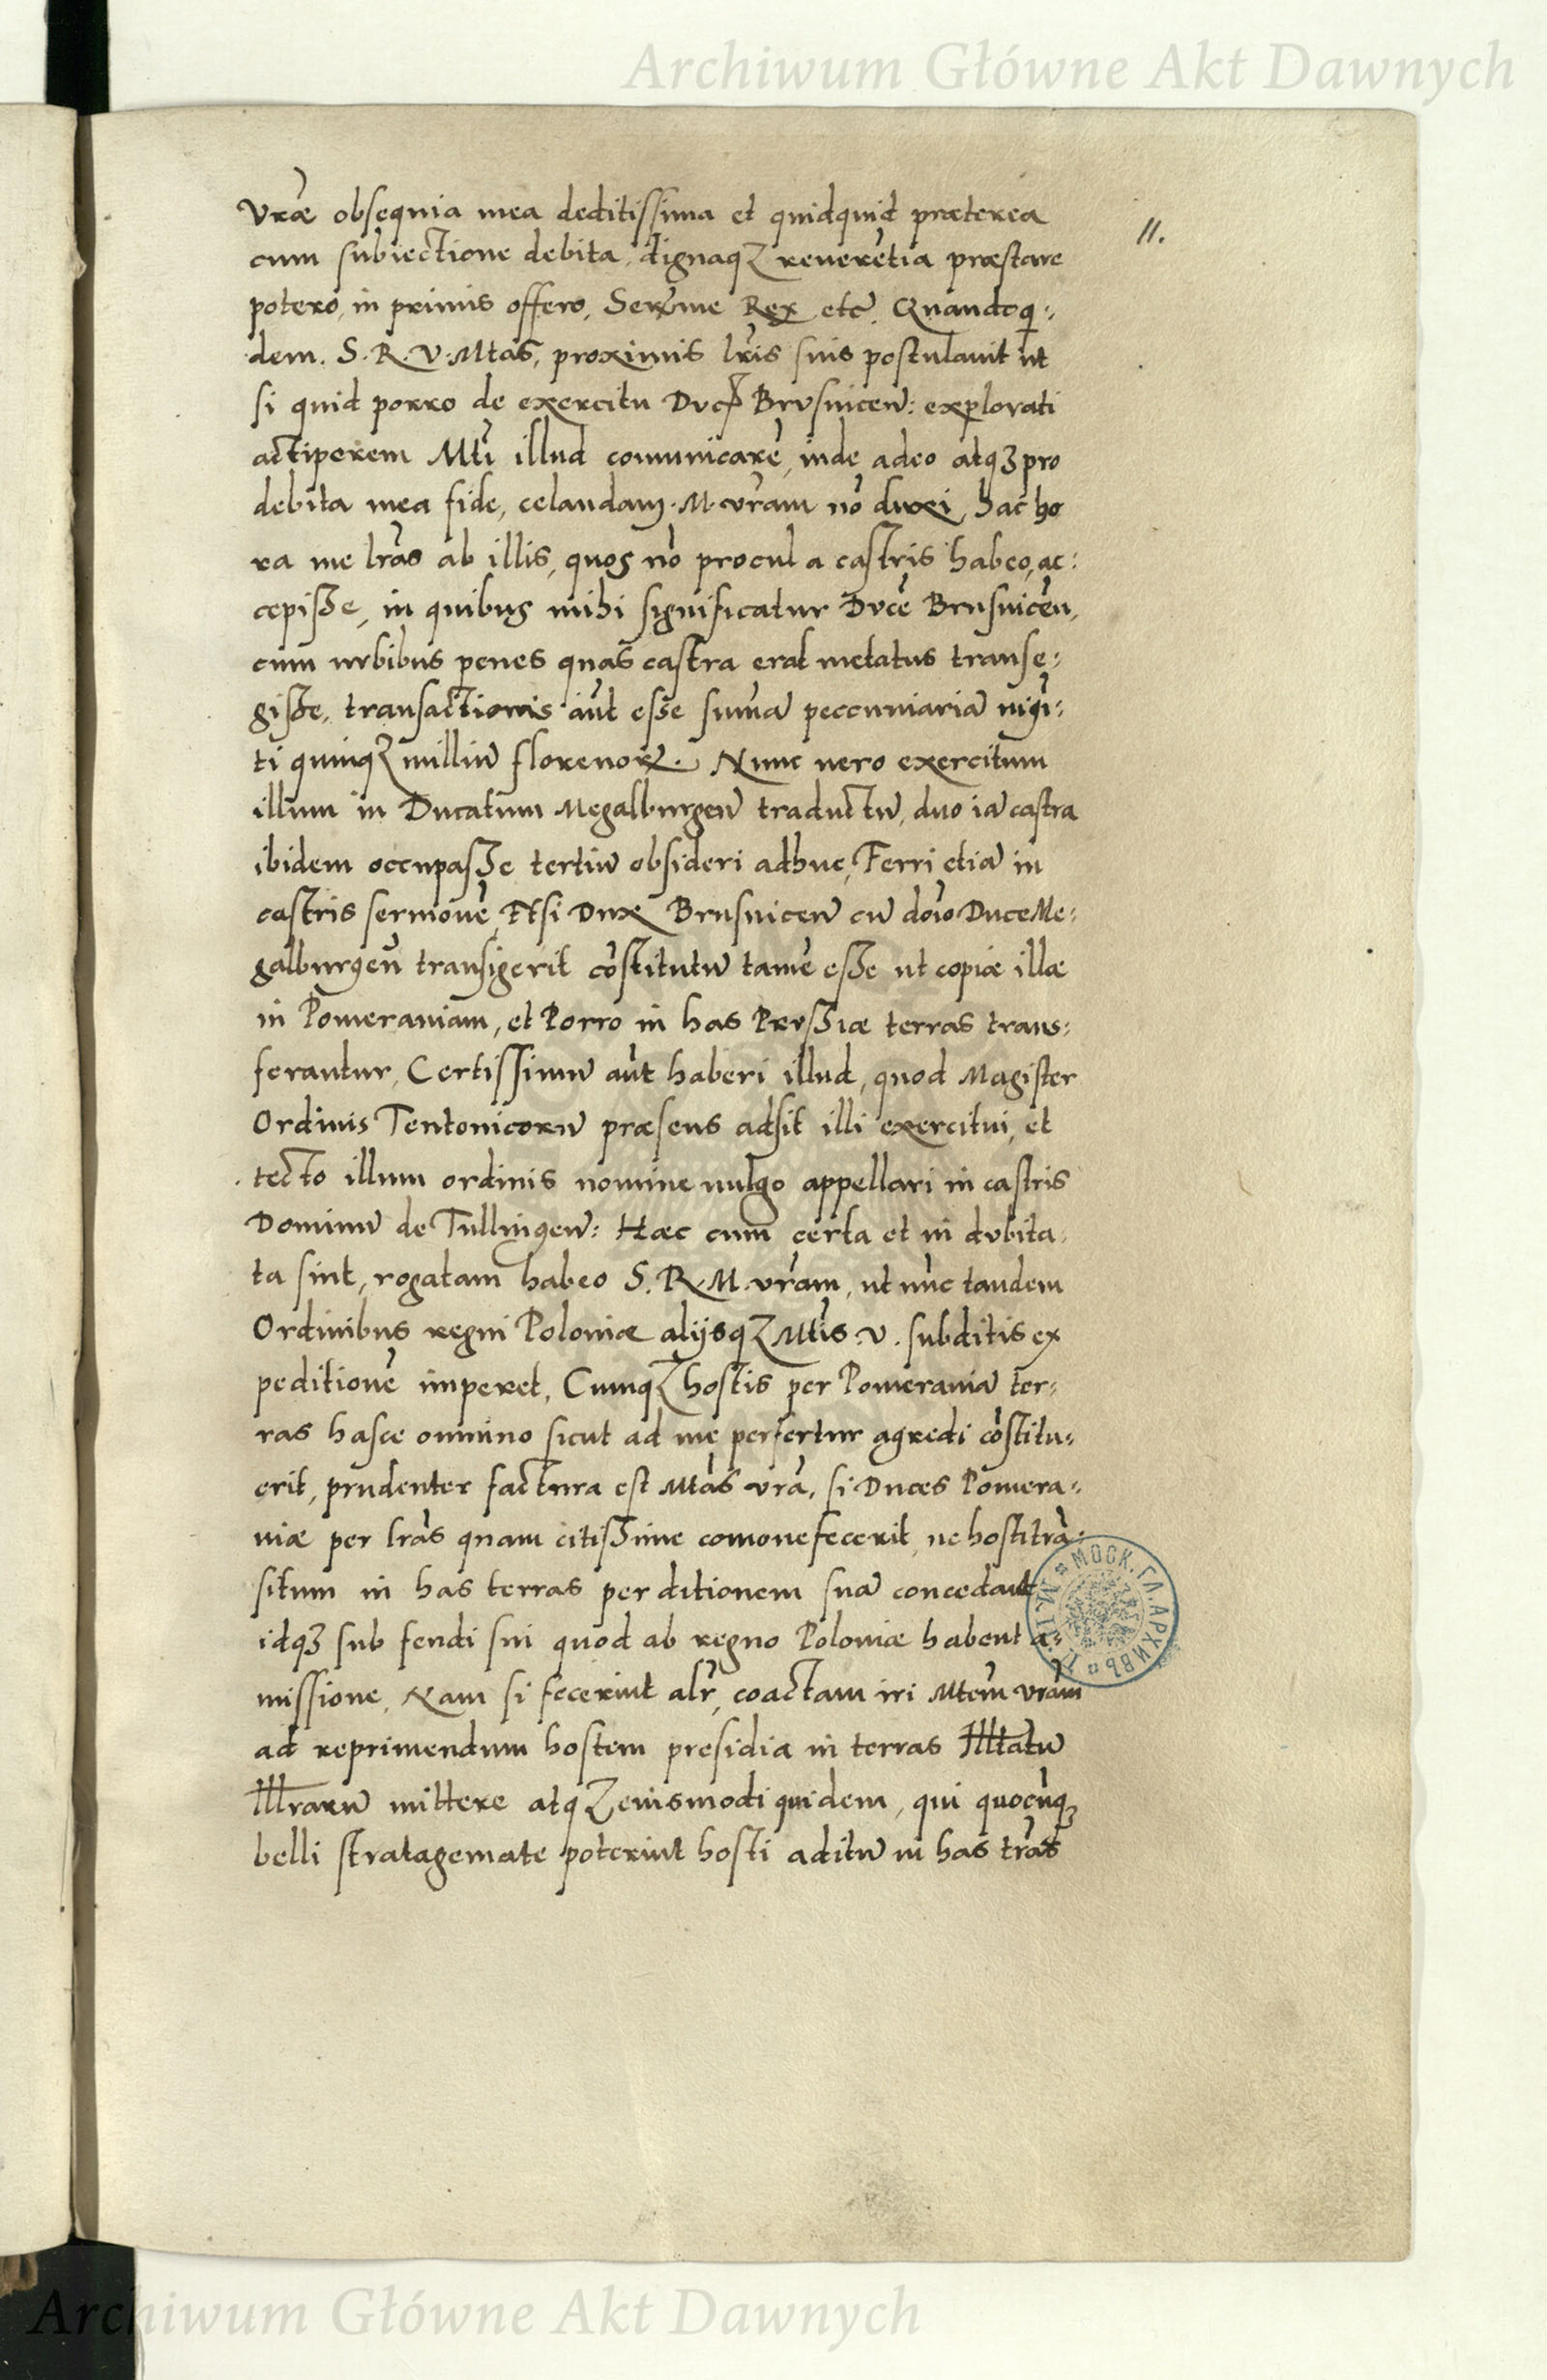 Archiwum Główne Akt Dawnych
11.
Vrãe obsequia mea deditissima et quidquid præterea
cum subiectione debita, dignaqȝ reuerẽtia præstare
potero, in primis offero, Serẽme Rex etc̃. Quandoqͥ:
dem. S. R. V. Mtas, proximis lr̃is suis postulauit ut
si quid porro de exercitu Ducꝭ Brusuicen̄: explorati
actiperem Mti illud comunicarẽ, inde adeo atqȝ pro
debita mea fide, celandam M. vr̃am nõ duxi, hac ho
ra me lr̃as ab illis, quos nõ procul a castris habeo, ac:
cepisse, in quibus mihi significatur Ducẽ Brusuicẽn,
cum urbibus penes quas castra erat metatus transe:
gisse, transactionis aũt esse sum̃a peccuniariã uigĩ:
ti quinqȝ milliũ florenoꝝ. Nunc uero exercitum
illum in Ducatum Megalburgen̄ traductũ, duo iã castra
ibidem occupasse tertiũ obsideri adhuc, Ferri etiã in
castris sermonẽ, Etsi Dux Brusuicen̄ cũ dõio Duce Me:
galburgen̄ transigerit cõstitutũ tamẽ esse ut copiæ illæ
in Pomeraniam, et Porro in has Prussiæ terras trans:
ferantur, Certissimũ aũt haberi illud, quod Magister
Ordinis Teutonicorũ præsens adsit illi exercitui, et
tecto illum ordinis nomine uulgo appellari in castris
Dominũ de Tullingen̄: Hæc cum certa et in dubita,
ta sint, rogatam habeo S. R. M. vr̃am, ut nũc tandem
Ordinibus regni Poloniæ alijsqȝ Mtis. V. subditis ex
peditionẽ imperet, Cumqȝ hostis per Pomeraniã ter:
ras hasce omnino sicut ad me perfertur agredi cõstitu:
erit, prudenter factura est Mtas vrã, si Duces Pomera:
niæ per lr̃as quam citissime comonefecerit, ne hosti trã:
situm in has terras per ditionem suã concedant
idqȝ sub feudi sui quod ab regno Poloniæ habent a:
missione, Nam si fecerint alr̃, coactam iri Mtem vr̃am
ad reprimendum hostem presidia in terras Illtatũ
Illrarũ mittere atqȝ eiusmodi quidem, qui quocũqȝ
belli stratagemate poterint hosti aditũ in has tr̃as
МОСК. ГЛ. АРХИВЪ
Archiwum Główne Akt Dawnych